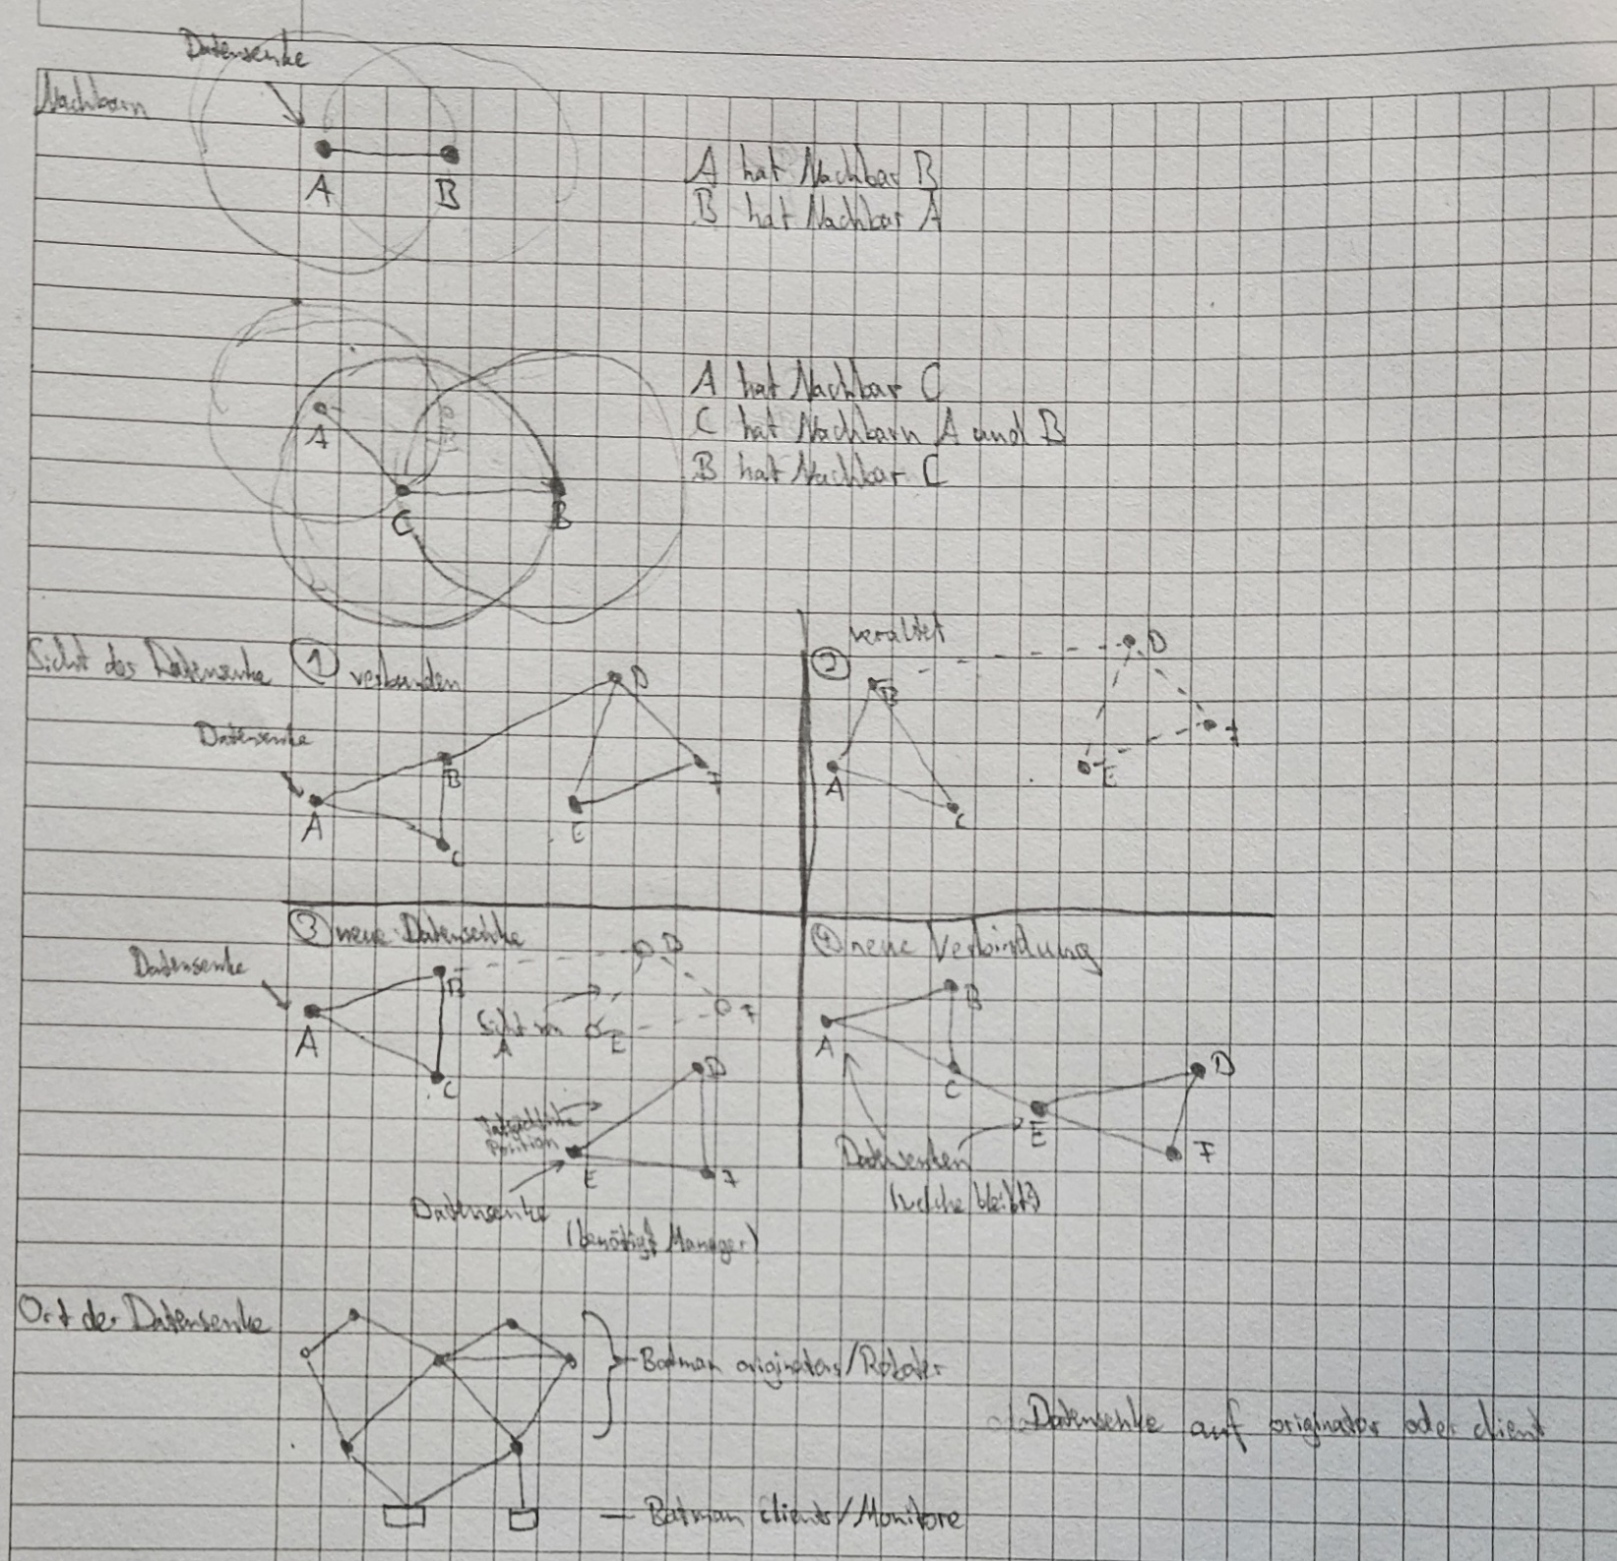 Datensenke
Nachbarn
A B
A hat Nachbar B
B hat Nachbar A
A hat Nachbar C
C hat Nachbarn A und B
B hat Nachbar C
A
C B
Sicht der Datensenke
① verbunden
D
Datensenke
B
A
C
E
F
② veraltet
D
B
F
A
E
C
③ neue Datensenke
Datensenke
D
B
Sicht von
A
E
F
A
C
D
Tatsächliche
Position
E
F
Datensenke
(benötigt Manager)
④ neue Verbindung
B
A
C
D
E
F
Datensenken
(welche bleibt?)
Ort der Datensenke
Batman originators/Roboter
Datensenke auf originator oder client
Batman clients/Monitore